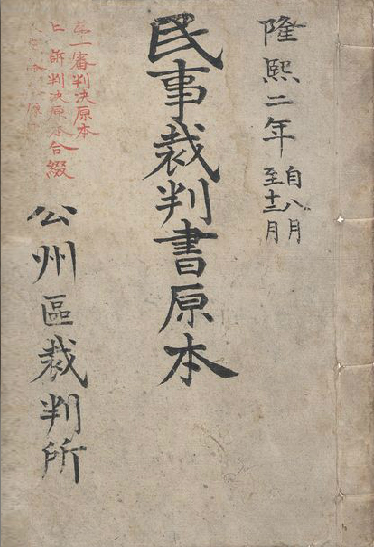 隆熙二年 自八月
至十二月
民事裁判書原本
第一審判決原本
上訴判決原本合綴
公州區裁判所